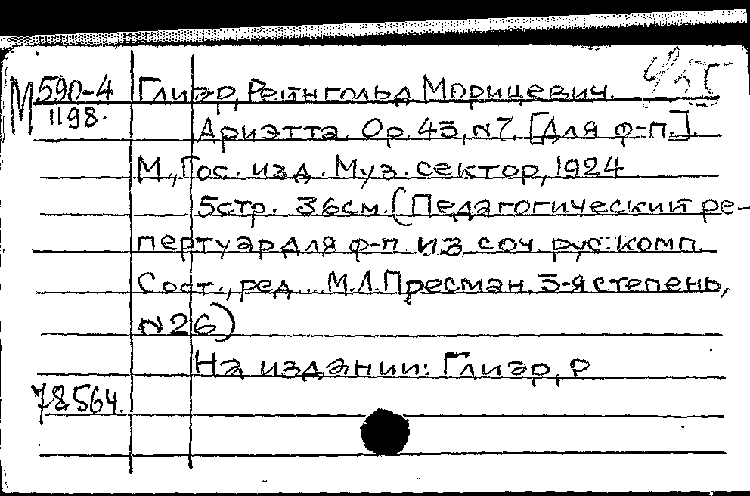 М 590-4 Глиэр, Рейнгольд Морицевич.
1198.
Ариэтта. Op. 43, N7. [Для ф-п.].
М., Гос. изд. Муз. сектор, 1924
5стр. 36см. (Педагогический ре-
пертуар для ф-п. из соч. рус. комп.
Сост., ред... М.Л.Пресман. 3-я степень,
N26)
На издании: Глиэр, Р
78564.